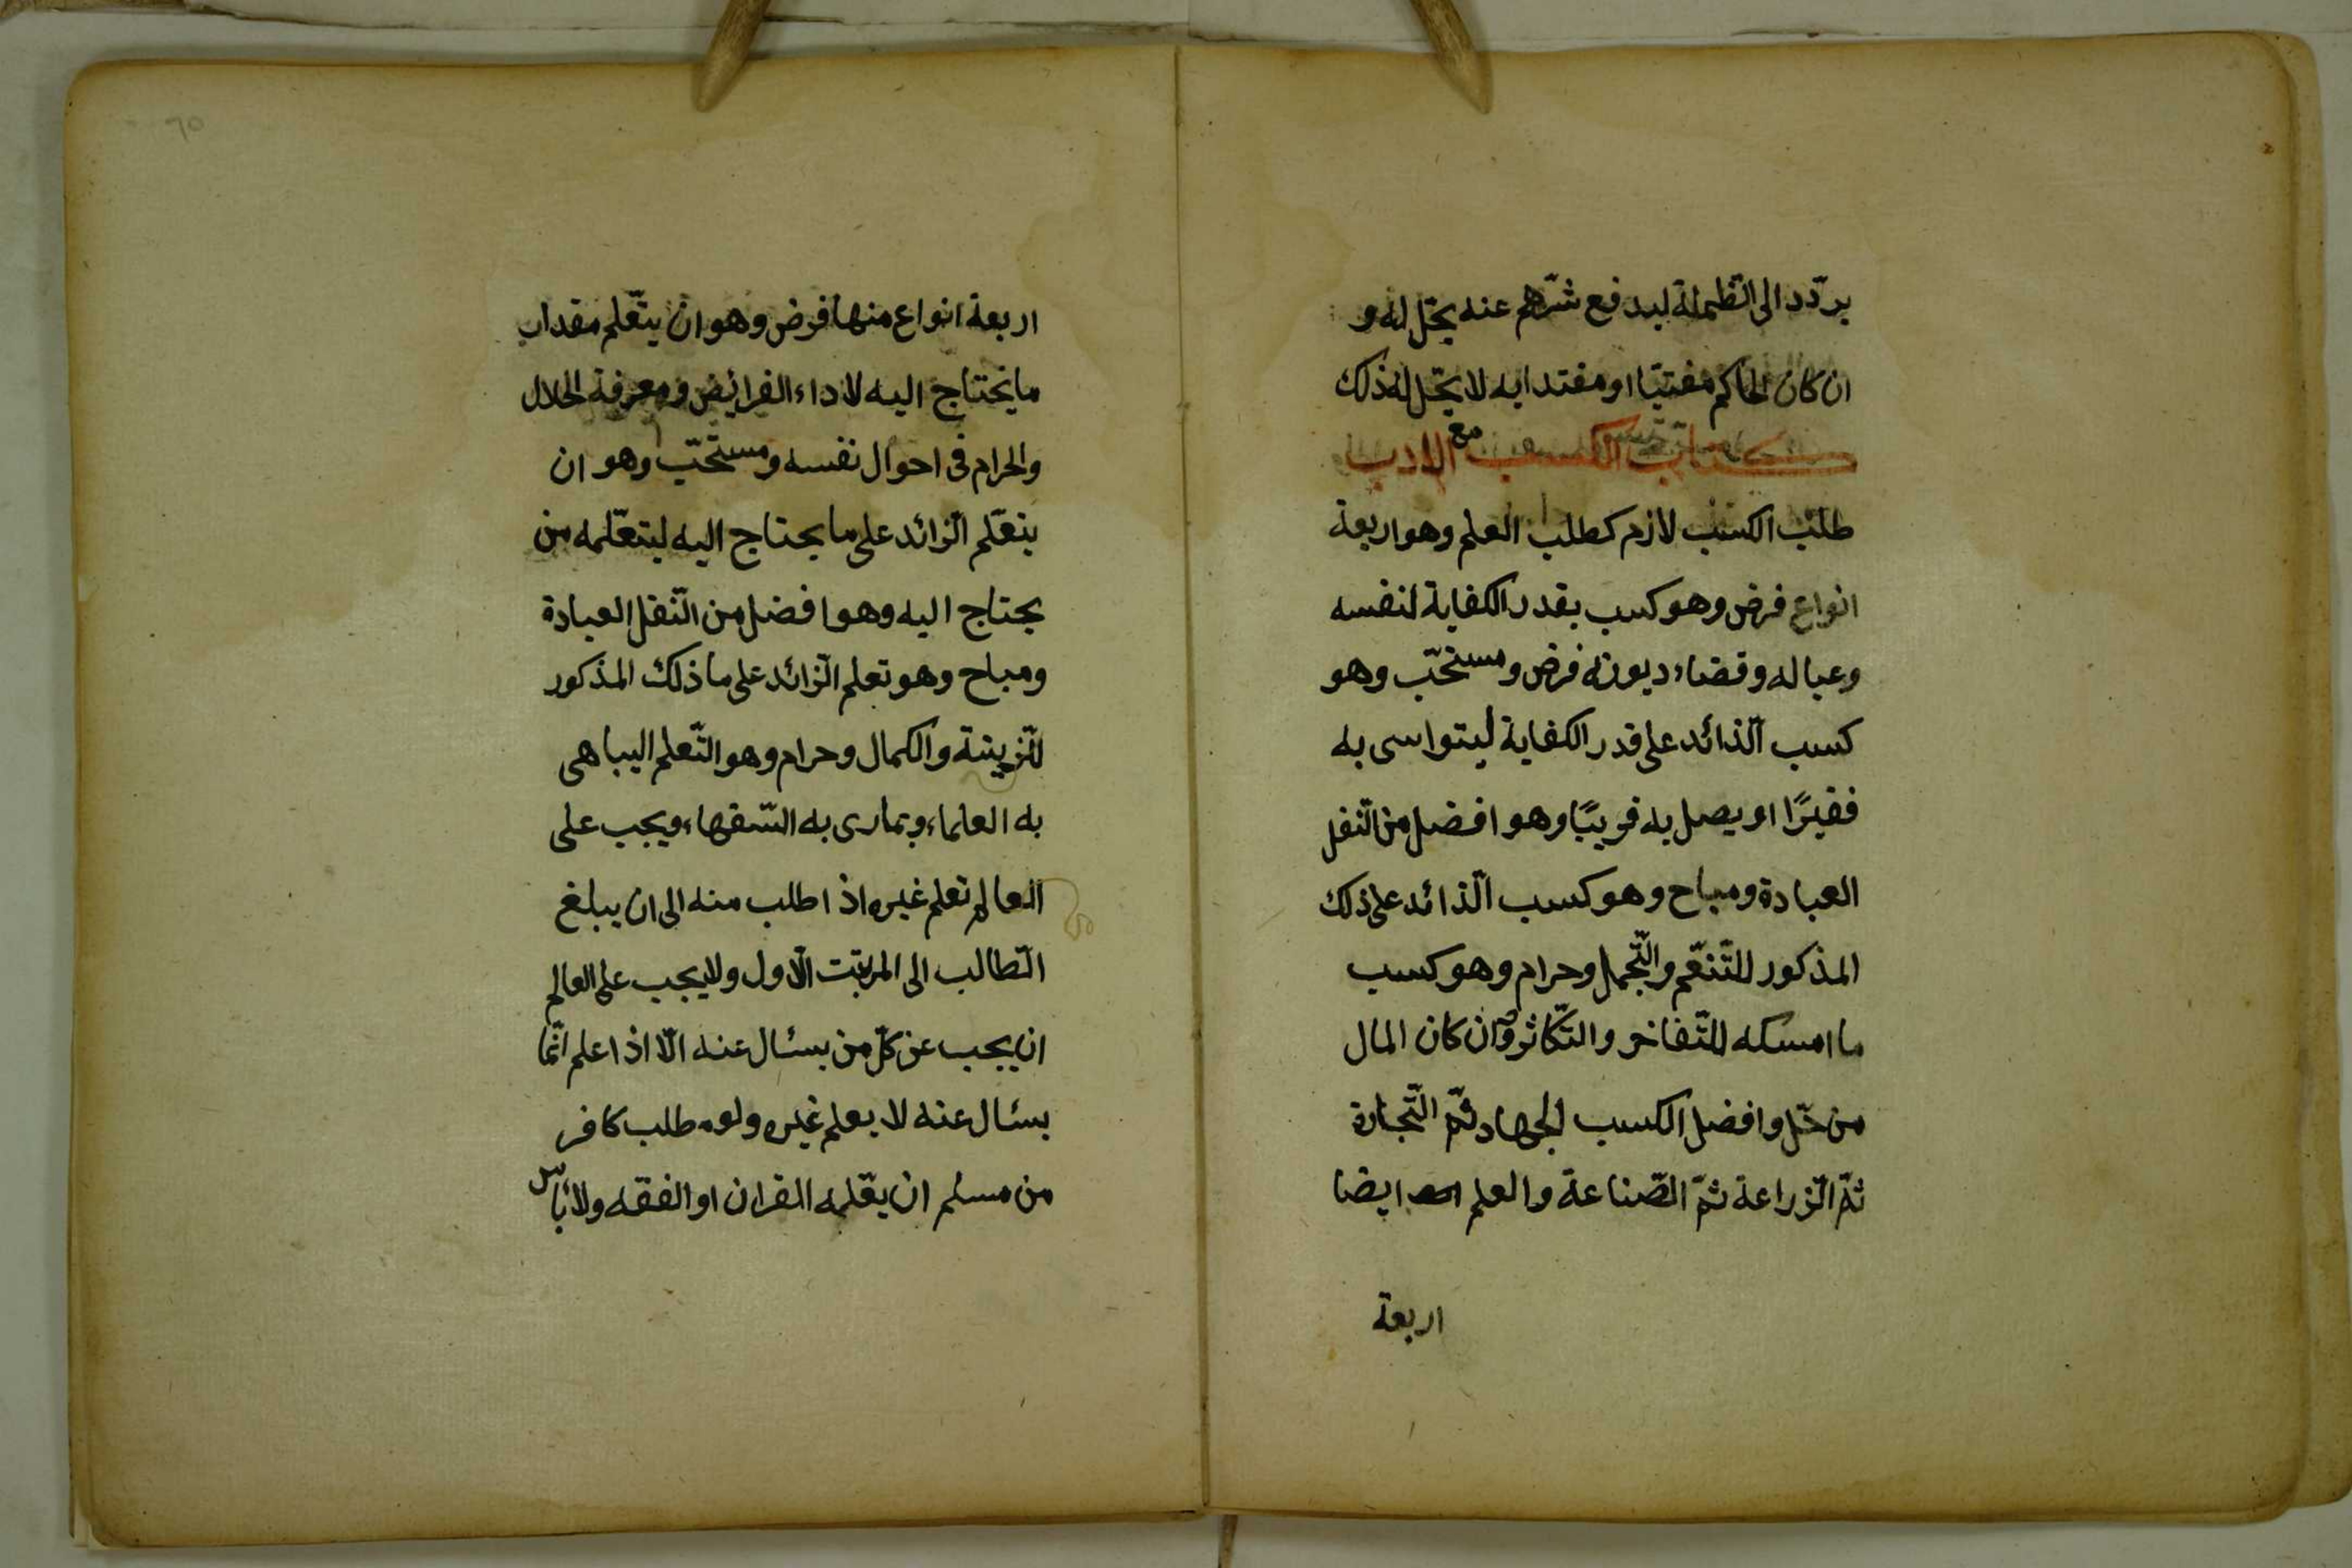 يردّد الى الظلمة ليدفع شرّهم عنه يحلّ له و
ان كان الحاكم مفتيّا او مقتدا به لا يحلّ له ذلك
كتاب الكسب مع الادب
طلب الكسب لازم كطلب العلم وهو اربعة
انواع فرض وهو كسب بقدر الكفاية لنفسه
وعياله وقضاء ديونه فرض ومستحبّ وهو
كسب الّذائد على قدر الكفاية ليتواسى به
فقيرًا او يصل به قريبًا وهو افضل من النّفل
العبادة ومباح وهو كسب الّذائد على ذلك
المذكور للتّنعّم والتّجمل وحرام وهو كسب
ما امسكه للتّفاخر والتّكاثر وان كان المال
من حلّ وافضل الكسب الجهاد ثمّ التّجارة
ثمّ الزّراعة ثمّ الصّناعة والعلم ايضا
اربعة
٦٥
اربعة انواع منها فرض وهو ان يتعّلم مقدار
ما يحتاج اليه لاداء الفرايض ومعرفة الحلال
والحرام فى احوال نفسه ومستحبّ وهو ان
يتعّلم الزّائد على ما يحتاج اليه ليتعّلمه من
يحتاج اليه وهو افضل من النّفل العبادة
ومباح وهو تعلم الزّائد على ما ذلك المذكور
للزّينة والكمال وحرام وهو التّعلم اليباهى
به العلماء ويمارى به السّفهاء ويجب على
العالم تعلم غيره اذا طلب منه الى ان يبلغ
الطّالب الى المرتبت الاّول ولا يجب على العالم
ان يجيب عن كلّ من يسئال عنه الّا اذا علم انّما
يسئال عنه لا يعلم غيره ولو طلب كافر
من مسلم ان يعّلمه القران او الفقه ولا بأس